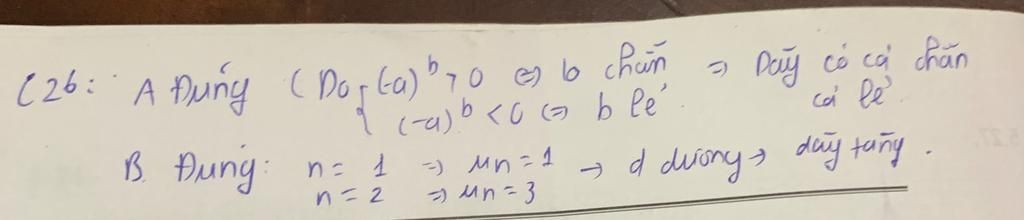 C26: A Đúng (Do { (-a)^b > 0 <=> b chẵn => Dãy có cả chẵn
(-a)^b < 0 <=> b lẻ. cả lẻ.
B. Đúng: n = 1 => un = 1 -> d dương -> dãy tăng.
n = 2 => un = 3